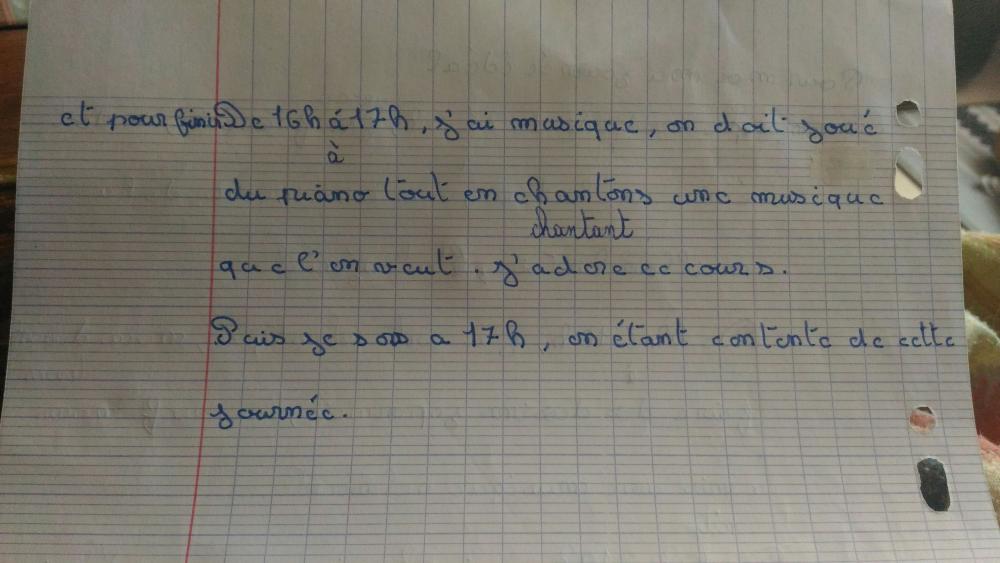 et pour finir De 16h á 17h, j'ai musique, on doit joué
à
du piano tout en chantons une musique
chantant
que l'on veut. j'adore ce cours.
Puis je sors a 17h, en étant contente de cette
journée.